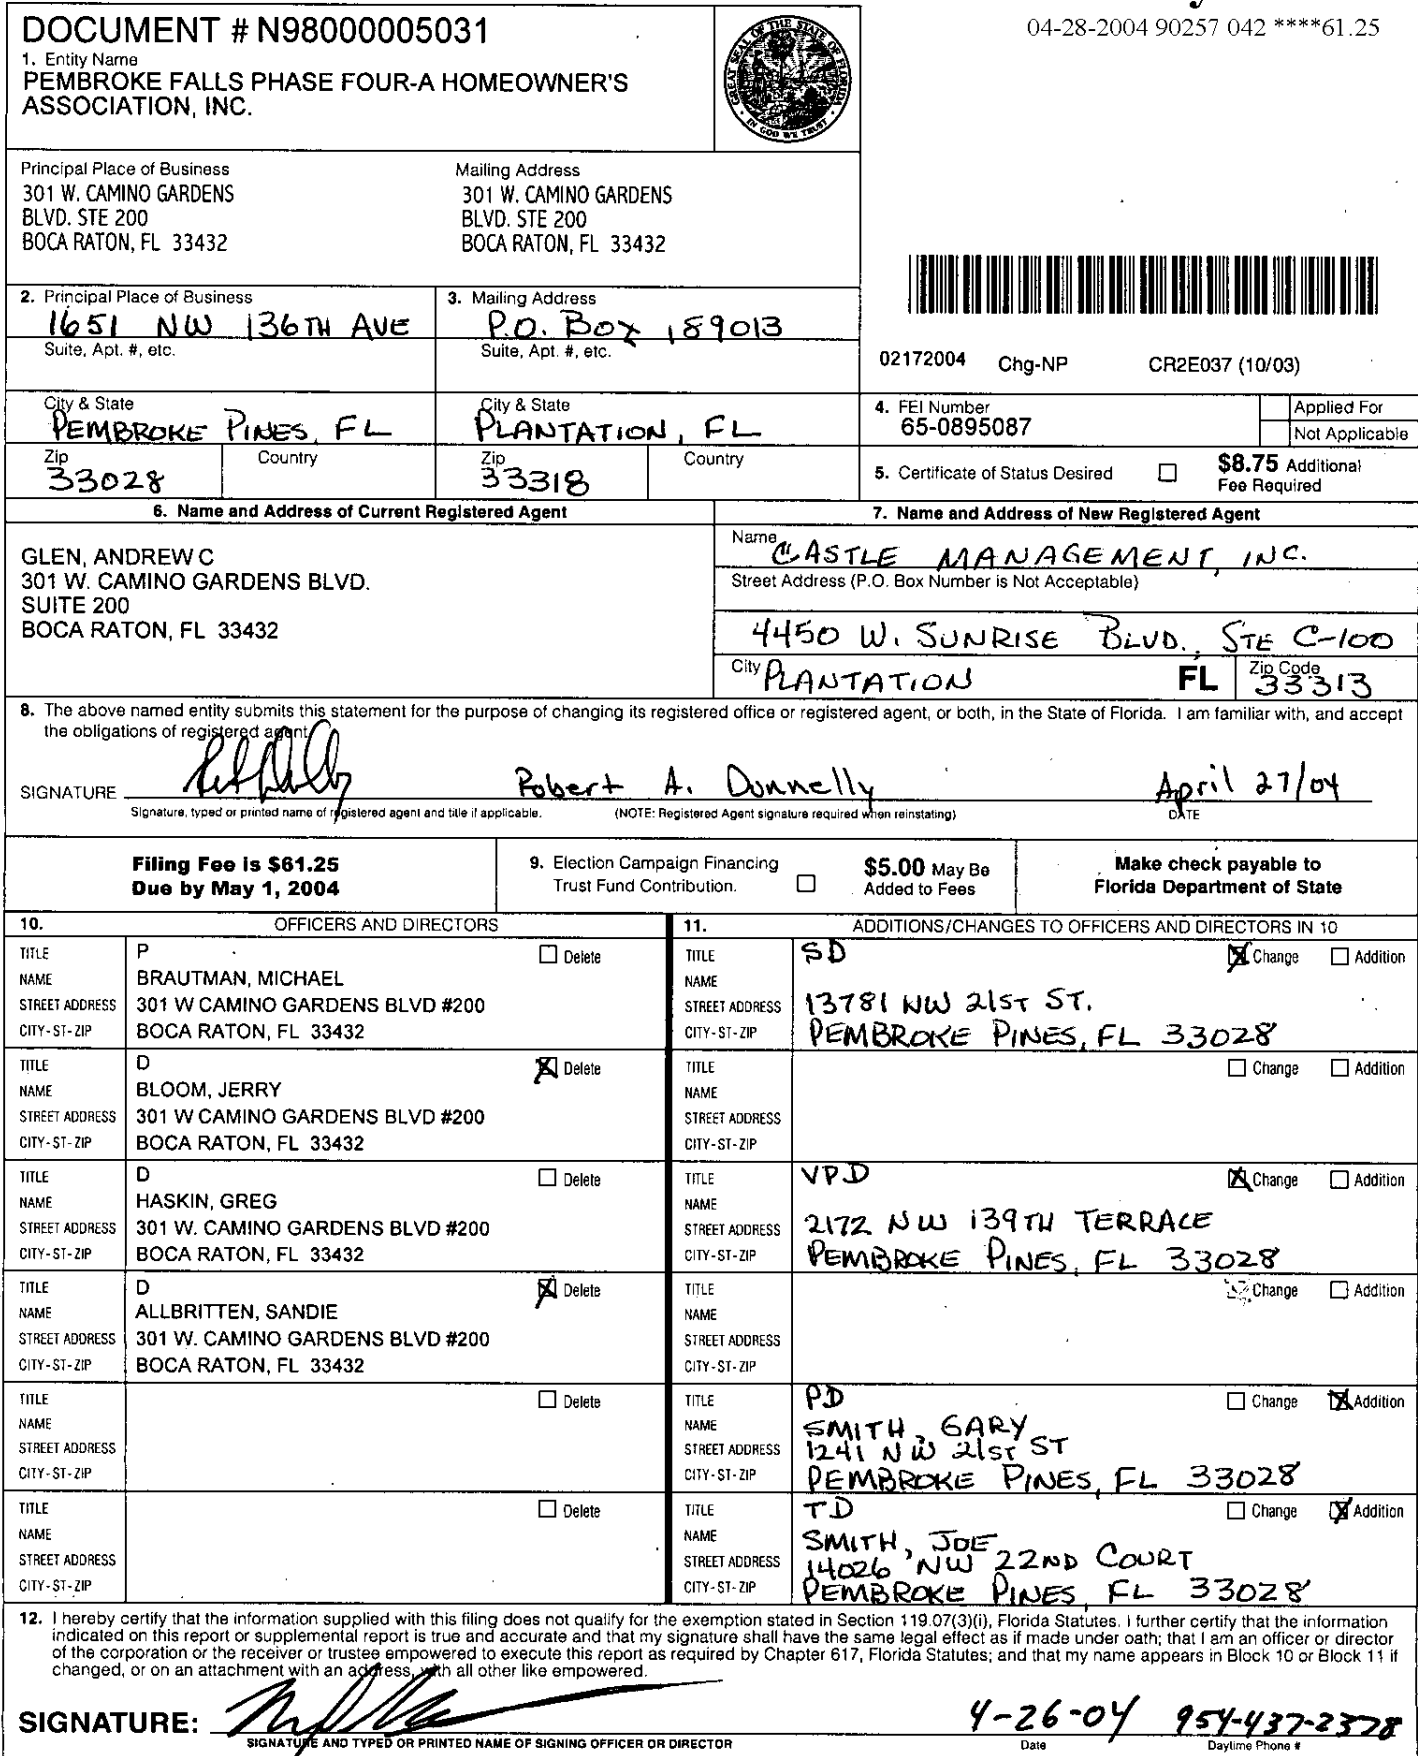 04-28-2004 90257 042 ****61.25
DOCUMENT # N98000005031
1. Entity Name
PEMBROKE FALLS PHASE FOUR-A HOMEOWNER'S
ASSOCIATION, INC.
GREAT SEAL OF THE STATE OF FLORIDA
IN GOD WE TRUST
Principal Place of Business
301 W. CAMINO GARDENS
BLVD. STE 200
BOCA RATON, FL 33432
Mailing Address
301 W. CAMINO GARDENS
BLVD. STE 200
BOCA RATON, FL 33432
2. Principal Place of Business
1651 NW 136TH AVE
Suite, Apt. #, etc.
3. Mailing Address
P.O. Box 189013
Suite, Apt. #, etc.
02172004 Chg-NP CR2E037 (10/03)
City & State
PEMBROKE PINES, FL
City & State
PLANTATION, FL
Zip
33028
Country
Zip
33318
Country
4. FEI Number
65-0895087
Applied For
Not Applicable
5. Certificate of Status Desired
$8.75 Additional
Fee Required
6. Name and Address of Current Registered Agent
GLEN, ANDREW C
301 W. CAMINO GARDENS BLVD.
SUITE 200
BOCA RATON, FL 33432
7. Name and Address of New Registered Agent
Name CASTLE MANAGEMENT, INC.
Street Address (P.O. Box Number is Not Acceptable)
4450 W. SUNRISE BLVD., STE C-100
City PLANTATION FL Zip Code 33313
8. The above named entity submits this statement for the purpose of changing its registered office or registered agent, or both, in the State of Florida. I am familiar with, and accept
the obligations of registered agent.
SIGNATURE Robert A. Donnelly April 27/04
Signature, typed or printed name of registered agent and title if applicable. (NOTE: Registered Agent signature required when reinstating) DATE
Filing Fee is $61.25
Due by May 1, 2004
9. Election Campaign Financing
Trust Fund Contribution.
$5.00 May Be
Added to Fees
Make check payable to
Florida Department of State
10. OFFICERS AND DIRECTORS
TITLE P Delete
NAME BRAUTMAN, MICHAEL
STREET ADDRESS 301 W CAMINO GARDENS BLVD #200
CITY-ST-ZIP BOCA RATON, FL 33432
TITLE D Delete
NAME BLOOM, JERRY
STREET ADDRESS 301 W CAMINO GARDENS BLVD #200
CITY-ST-ZIP BOCA RATON, FL 33432
TITLE D Delete
NAME HASKIN, GREG
STREET ADDRESS 301 W. CAMINO GARDENS BLVD #200
CITY-ST-ZIP BOCA RATON, FL 33432
TITLE D Delete
NAME ALLBRITTEN, SANDIE
STREET ADDRESS 301 W. CAMINO GARDENS BLVD #200
CITY-ST-ZIP BOCA RATON, FL 33432
TITLE Delete
NAME
STREET ADDRESS
CITY-ST-ZIP
TITLE Delete
NAME
STREET ADDRESS
CITY-ST-ZIP
11. ADDITIONS/CHANGES TO OFFICERS AND DIRECTORS IN 10
TITLE SD Change Addition
NAME
STREET ADDRESS 13781 NW 21ST ST.
CITY-ST-ZIP PEMBROKE PINES, FL 33028
TITLE Change Addition
NAME
STREET ADDRESS
CITY-ST-ZIP
TITLE VPD Change Addition
NAME
STREET ADDRESS 2172 NW 139TH TERRACE
CITY-ST-ZIP PEMBROKE PINES, FL 33028
TITLE Change Addition
NAME
STREET ADDRESS
CITY-ST-ZIP
TITLE PD Change Addition
NAME SMITH, GARY
STREET ADDRESS 1241 NW 21ST ST
CITY-ST-ZIP PEMBROKE PINES, FL 33028
TITLE TD Change Addition
NAME SMITH, JOE
STREET ADDRESS 14026 NW 22ND COURT
CITY-ST-ZIP PEMBROKE PINES, FL 33028
12. I hereby certify that the information supplied with this filing does not qualify for the exemption stated in Section 119.07(3)(i), Florida Statutes. I further certify that the information
indicated on this report or supplemental report is true and accurate and that my signature shall have the same legal effect as if made under oath; that I am an officer or director
of the corporation or the receiver or trustee empowered to execute this report as required by Chapter 617, Florida Statutes; and that my name appears in Block 10 or Block 11 if
changed, or on an attachment with an address, with all other like empowered.
SIGNATURE: 4-26-04 954-437-2378
SIGNATURE AND TYPED OR PRINTED NAME OF SIGNING OFFICER OR DIRECTOR Date Daytime Phone #